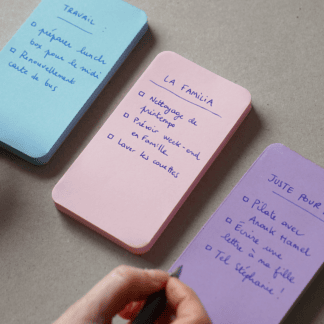 TRAVAIL
□ préparer lunch
box pour le midi
□ Renouvellement
carte de bus
LA FAMILIA
□ Nettoyage de
printemps
□ Prévoir week-end
en famille
□ Laver les couettes
JUSTE POUR
□ Pilate avec
Anouk Mamel
□ Écrire une
lettre à ma fille
□ Tel Stéphanie !